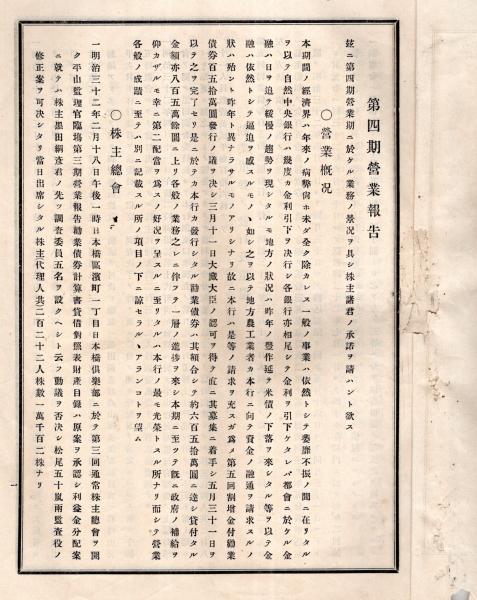 第四期營業報告
茲ニ第四期營業期ニ於ケル業務ノ景况ヲ具シ株主諸君ノ承諾ヲ請ハント欲ス
〇營業概况
本期間ノ經濟界ハ年來ノ病弊尙ホ未ダ全ク除カレス一般ノ事業ハ依然トシテ萎靡不振ノ間ニ在リタル
ヲ以テ自然中央銀行ハ幾度カ金利引下ヲ決行シ各銀行亦相尾シテ金利ヲ引下ケタレバ都會ニ於ケル金
融ハ日ヲ追テ緩慢ノ趨勢ヲ現シタルモ地方ノ狀况ハ昨年ノ豐作延テ米價ノ下落ヲ來シタル等ヲ以テ金
融ハ依然トシテ逼迫ヲ感スルモノヽ如シ之ヲ以テ地方農工業者カ本行ニ向テ資金ノ融通ヲ請求スルノ
狀ハ殆ント昨年ト異ナラサルモノアリシナリ故ニ本行ハ是等ノ請求ヲ充スガ爲メ第五回割增金付勸業
債券百五拾萬圓發行ノ議ヲ決シ三月十一日大藏大臣ノ認可ヲ得テ直ニ其募集ニ着手シ五月三十一日ヲ
以テ之ヲ完了セリ是ニ於テカ本行カ發行シタル勸業債券ハ其額合シテ約六百五拾萬圓ニ達シ貸付タル
金額亦八百五萬餘圓ニ上リ各般ノ業務之レニ伴フテ一層ノ進捗ヲ來シ本期ニ至ツテ旣ニ政府ノ補給ヲ
仰カザルモ幸ニ第二配當ヲ爲スノ好况ヲ呈スルニ至リタルハ本行ノ最モ光榮トスル所ナリ而シテ營業
各般ノ成蹟ニ至テハ別ニ記載スル所ノ項目ノ下ニ諒セラルヽアランコトヲ望ム
〇株主總會
一明治三十二年二月十八日午後一時日本橋區濱町一丁目日本橋俱樂部ニ於テ第三回通常株主總會ヲ開
ク平山監理官臨塲第三期營業報告勸業債券計算書貸借對照表財產目錄ハ原案ヲ承認シ利益金分配案
ニ就テハ株主墨田綱彥君ノ先ツ調査委員五名ヲ設クヘシト云フ動議ヲ否決シ松尾五十嵐兩監査役ノ
修正案ヲ可決シタリ當日出席シタル株主代理人共二百二十二人株數一萬千百二株ナリ
一